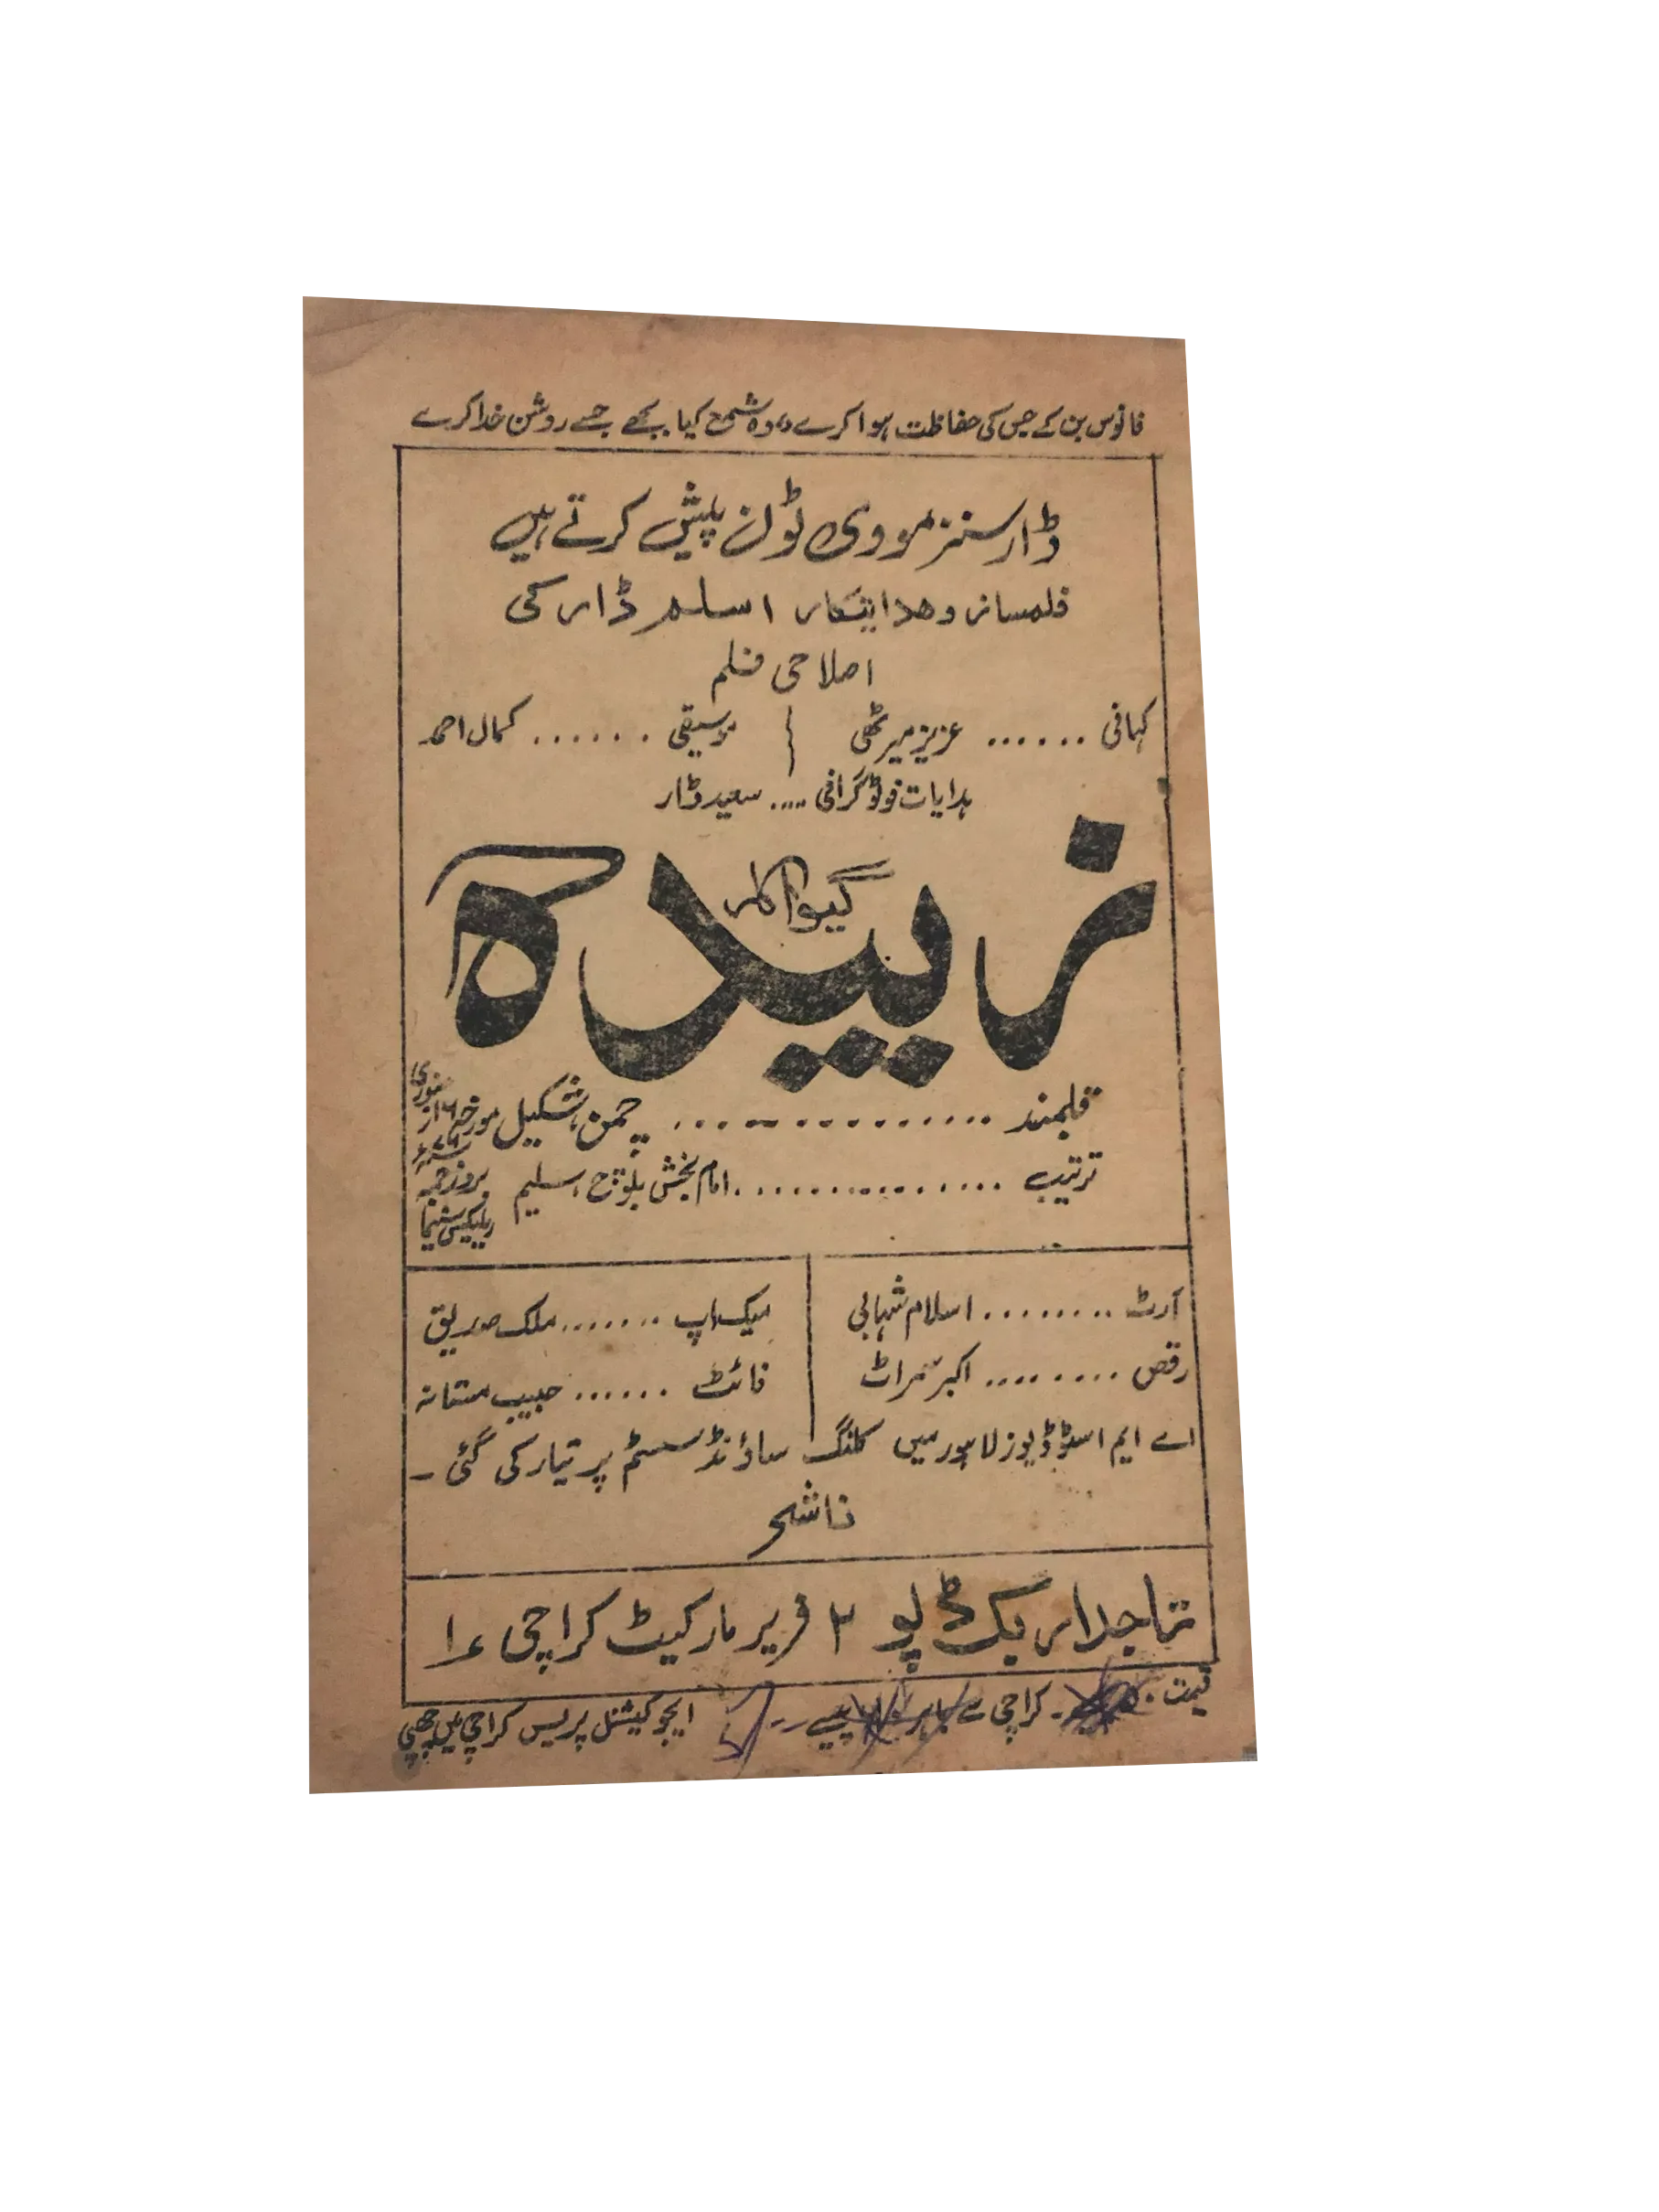 فانوس بن کے جس کی حفاظت ہوا کرے ، وہ شمع کیا بجھے جسے روشن خدا کرے
ڈار سنز مووی ٹون پیش کرتے ہیں
فلمساز و ھدایتکار اسلم ڈار کی
اصلاحی فلم
کہانی ...... عزیز میرٹھی
موسیقی ...... کمال احمد
ہدایات فوٹوگرافی ..... سعید ڈار
زبیدہ
گیوا کلر
قلمبند .............. چمن، شکیل
ترتیب ............... امام بخش بلوچ، سلیم
مورخہ ۱۶ جنوری
بروز جمعہ
ریلیکس سینما
آرٹ ........ اسلام شہابی
میک اپ ....... ملک صدیق
رقص ......... اکبر سمراٹ
فائٹ ...... حبیب مستانہ
اے ایم اسٹوڈیوز لاہور میں کلنگ ساؤنڈ سسٹم پر تیار کی گئی ۔
ناشر
تاجدار بک ڈپو ۲ فریر مارکیٹ کراچی ۱
قیمت کراچی سے باہر پیسے
ایجوکیشنل پریس کراچی میں چھپی